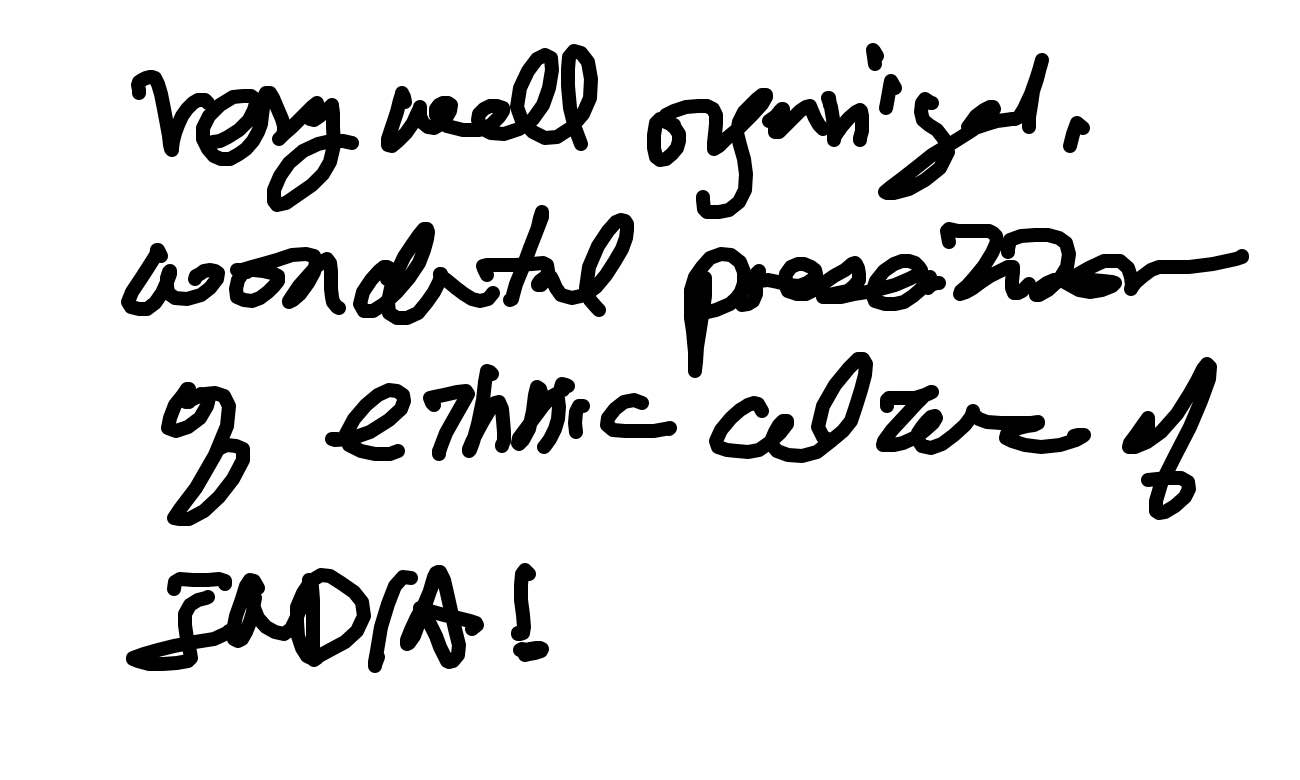 Very well organized.
wonderful presentation
of ethnic culture of
INDIA!